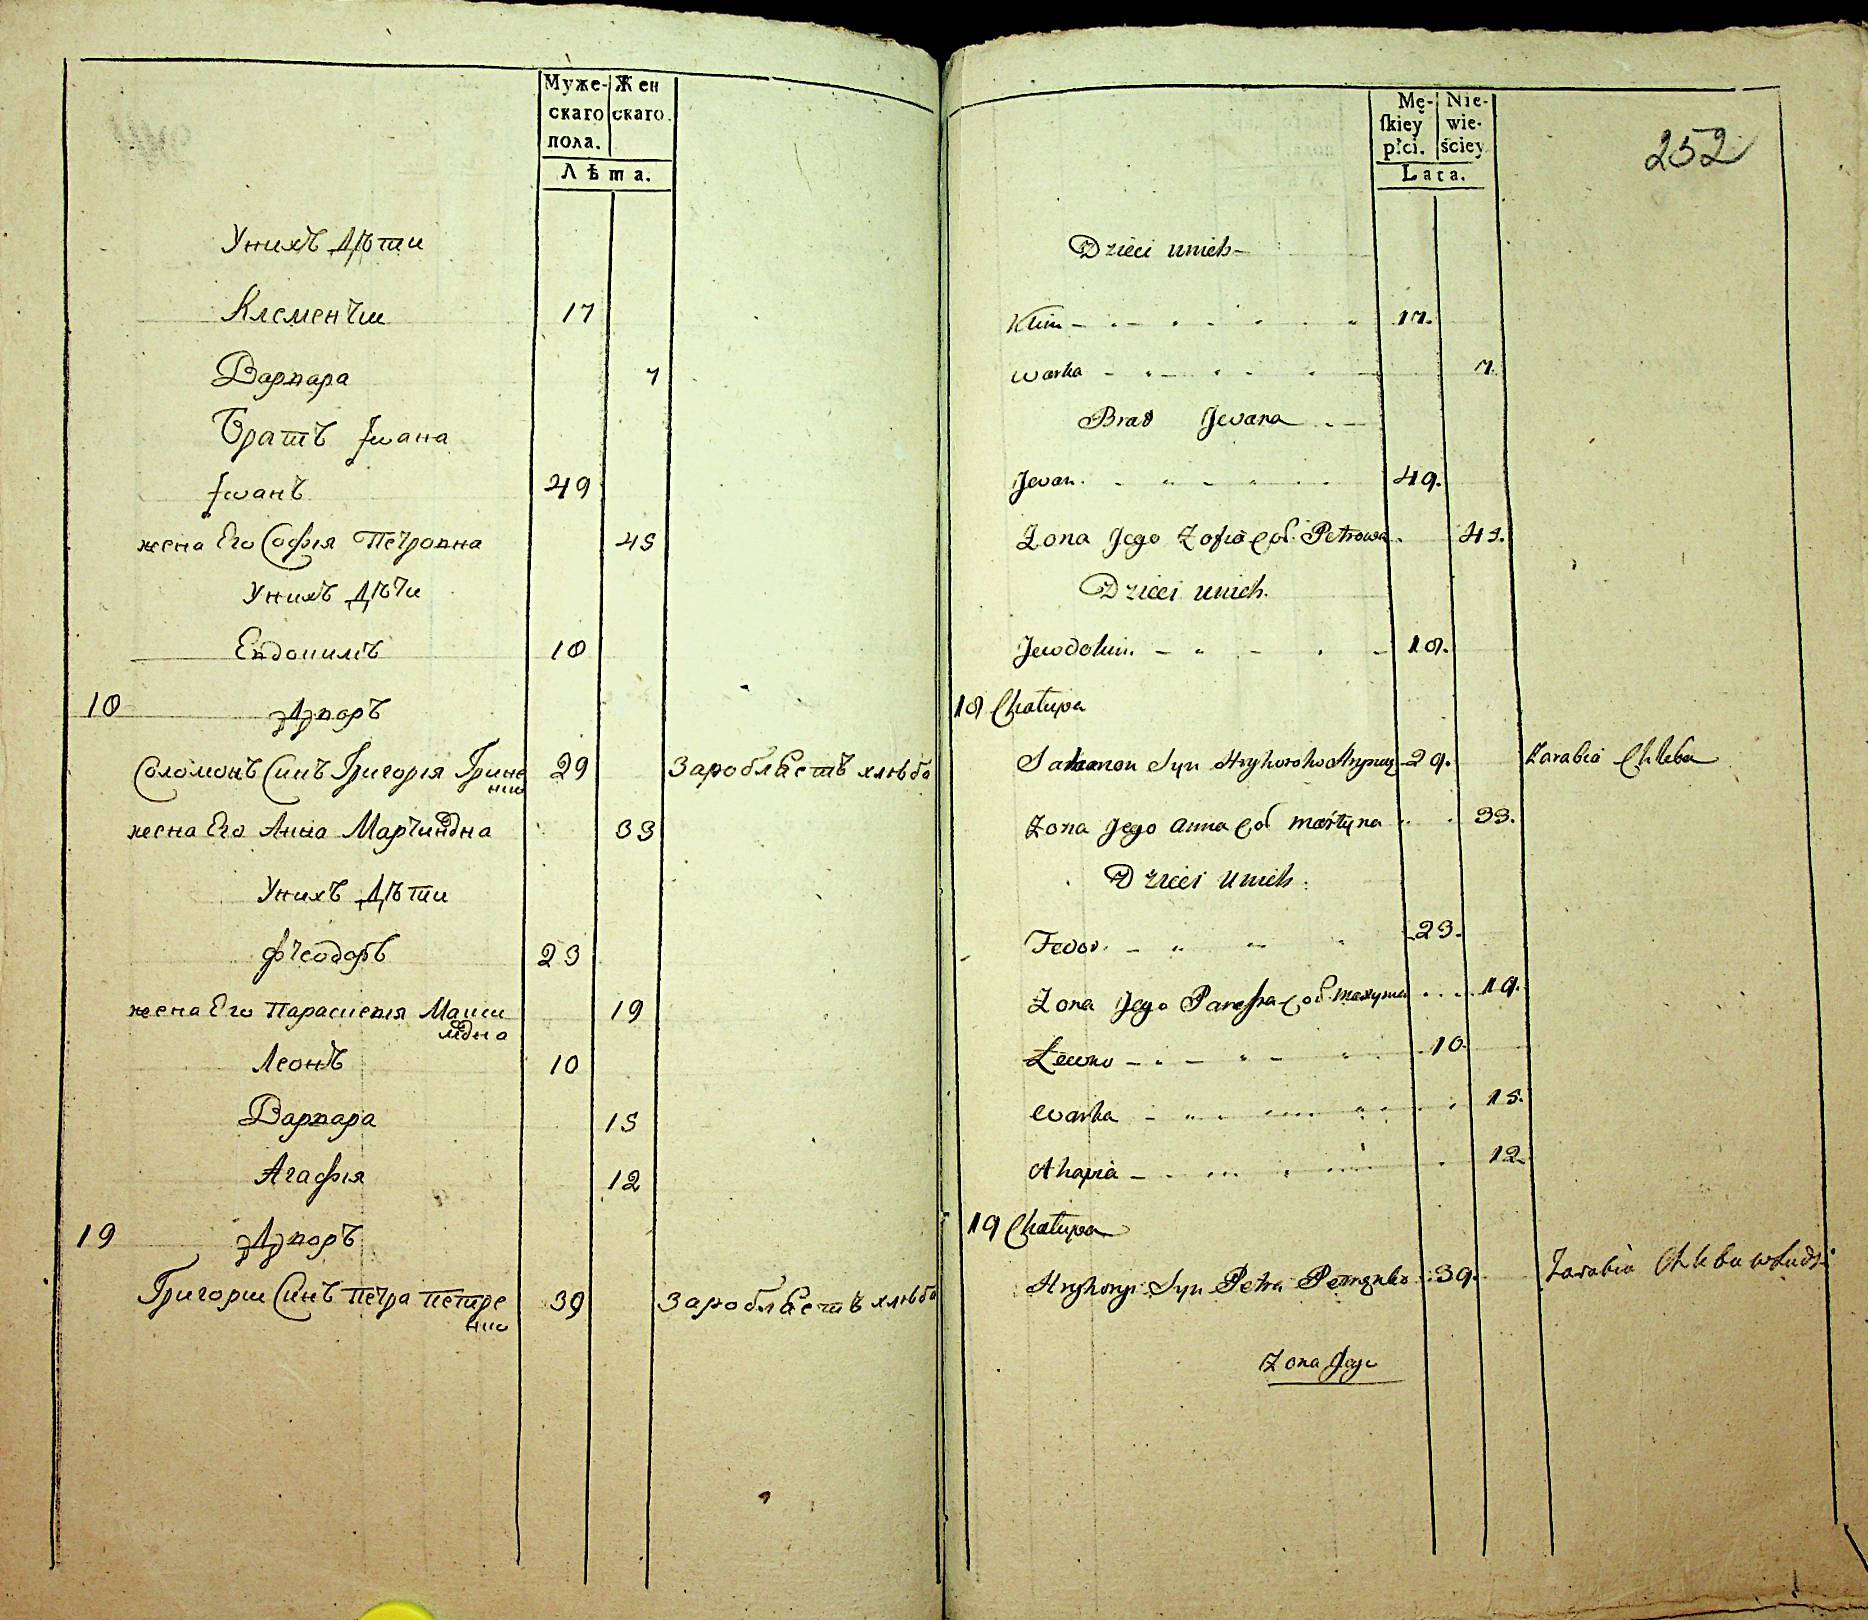 Муже- Жен
скаго скаго.
пола.
Лѣта.
Унихъ Дѣти
Клементии 17
Варвара 7
Братъ Iвана
Iванъ 49
жена Его Софiя Петровна 45
Унихъ Дѣти
Евдокимъ 18
18 Дворъ
Соломонъ Синъ Григорiя Грине
нко 29 Заробляетъ хлѣба
жена Его Анна Мартиновна 33
Унихъ Дѣти
Фтеодоръ 23
жена Его Параскевiя Макси
мовна 19
Леонъ 10
Варвара 15
Агафiя 12
19 Дворъ
Григории Синъ Петра Петре
нко 39 Заробляетъ хлѣба
Mę- Nie-
ſkiey wie-
płci. ściey
Lata.
252
Dzieci unich
Klim 17.
Warka 7.
Brat Jwana
Jwan. 49.
Zona Jego Zofia Cor. Petrowa 45.
Dzieci unich.
Jewdokim. 18.
18 Chałupa
Salamon Syn Hryhoroho 29. Zarabia Chleba
Zona Jego Anna Cor Martyna 33.
Dzieci unich.
Fedor. 23.
Zona Jego Paraska Cor. Maxyma 19.
Lewko 10.
Warka 15.
Ahapia 12.
19 Chałupa
Hryhory Syn Petra Petrenko 39. Zarabia Chleba wludzi
Zona Jego